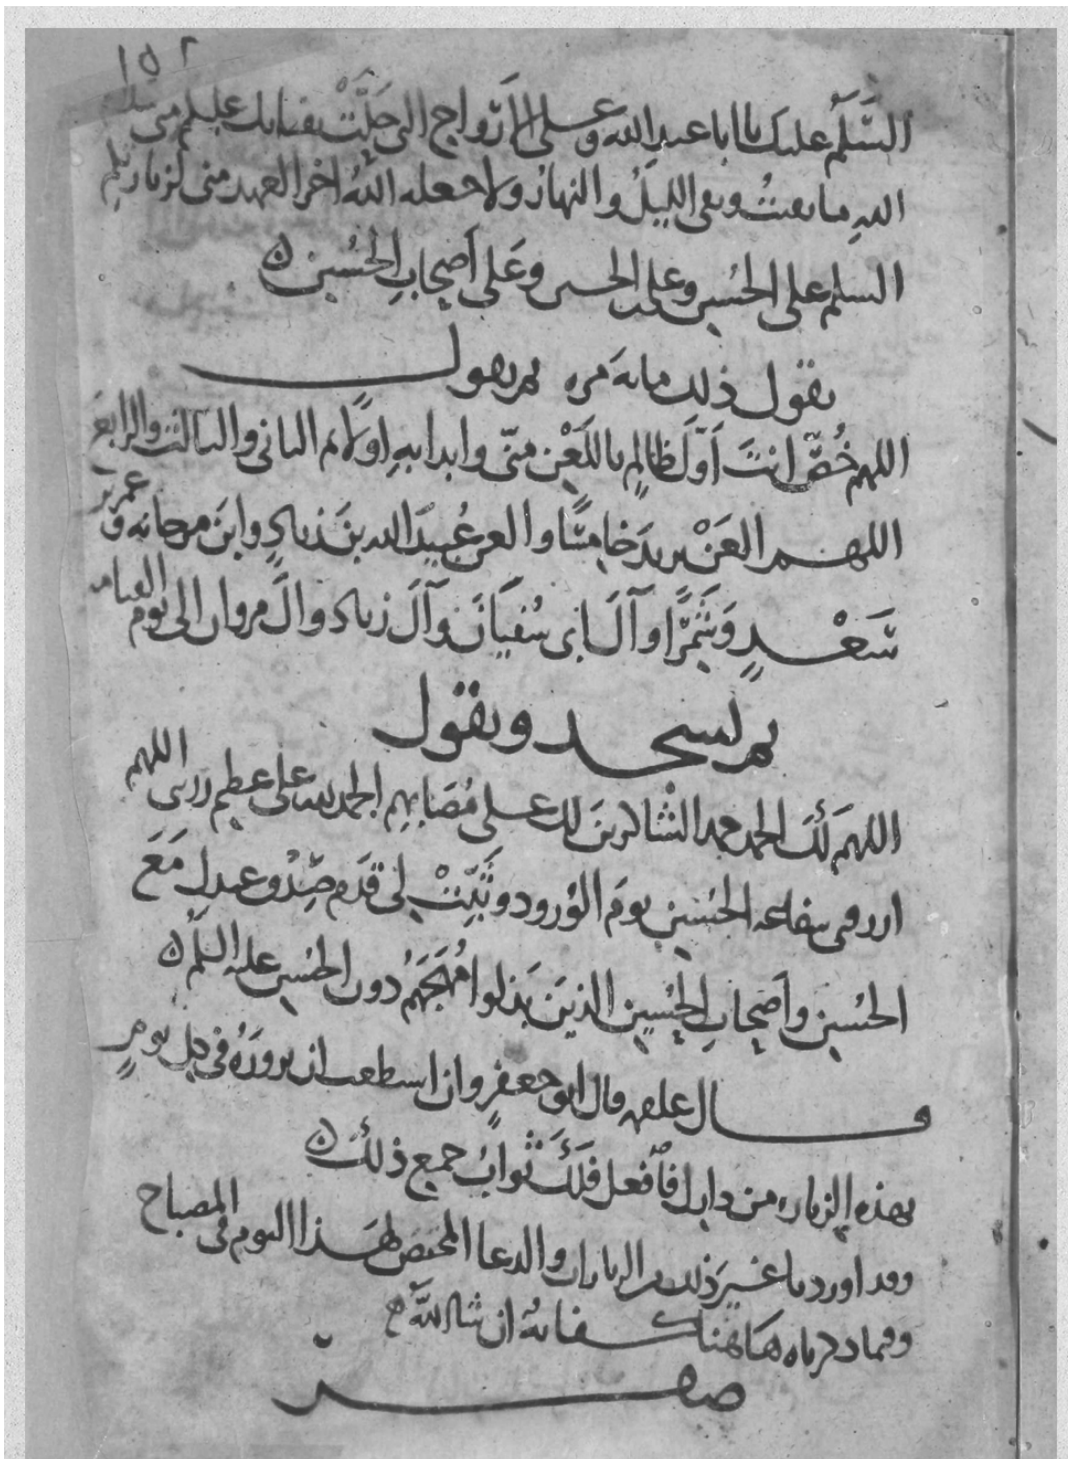 ١٥٢
السَّلَمُ عليك يا ابا عبد الله وعلى الارواح التي حَلَّتْ بفنايك عليكم مني سلام
اللهِ ما بقيتُ وبقى الليلُ والنهارُ ولا جعله اللهُ اخر العهد مني لزيارتكم
السلم على الحُسين وعلى الحسين وعَلى اَصحابِ الحُسين
يقول ذلك مايه مره ثم يقول
اللهم خُصَّ انتَ اَوّلَ ظالِمٍ باللَعْن منّى وابدا بهِ اولًا ثم الثانى والثالث والرابع
اللهم العَنْ يزيدَ خامسًا والعن عُبيدَ الله بنَ زيادٍ وابنَ مرجانه وعمر بن
سَعْدٍ وَشِمْرًا وآلَ ابى سُفيَانَ وآلَ زياد وآلَ مروان الى يوم القيامه
ثم يسجد ويقول
اللهمَ لَكَ الحمد حمد الشاكرينَ لك على مُصَابِهم الحمد لله على عظيم رزيتى اللهم
ارزقنى شفاعه الحُسين يومَ الوُرود وثَبِّتْ لى قدَم صِدْقٍ عندك مَعَ
الحُسين واَصحابِ الحُسين الذينَ بذلوا مُهَجَهُمْ دون الحُسين عليه السلم
قال علقمه قال ابو جعفرٍ وان استطعت ان تزورَهُ في كل يومٍ
بهذه الزياره من دارك فافعل فلَكَ ثوابُ جميع ذلك
وقد اوردنا غيرَ ذلك من الزيارات والدعا المختص بهذا اليوم في المصباح
وفيما ذكرناه هَاهُنا كفايهٌ ان شا اللهُ
صفر